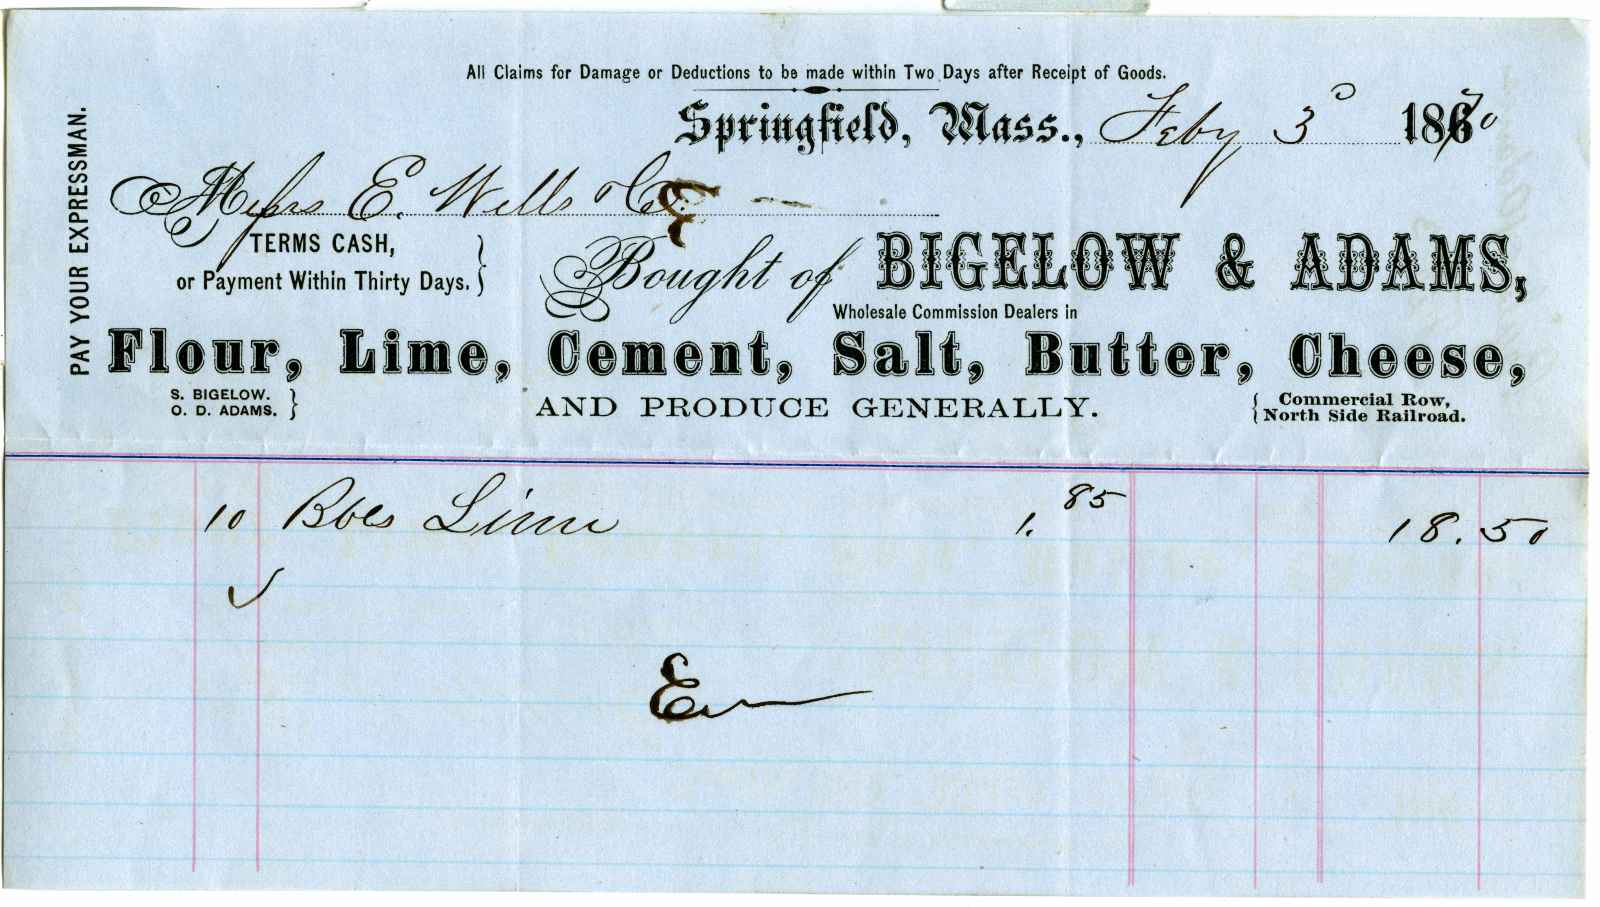 All Claims for Damage or Deductions to be made within Two Days after Receipt of Goods.
Springfield, Mass., Feby 3d 1870
PAY YOUR EXPRESSMAN.
Messrs E. Wells & Co.
TERMS CASH,
or Payment Within Thirty Days.
Bought of BIGELOW & ADAMS,
Wholesale Commission Dealers in
Flour, Lime, Cement, Salt, Butter, Cheese,
S. BIGELOW.
O. D. ADAMS.
AND PRODUCE GENERALLY.
Commercial Row,
North Side Railroad.
10 Bbls Lime 1.85 18.50